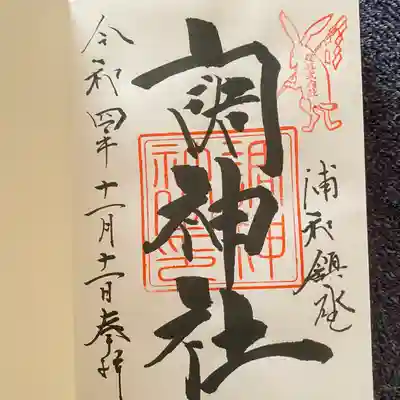 浦和鎮座
調神社
令和四年十一月十二日奉拝